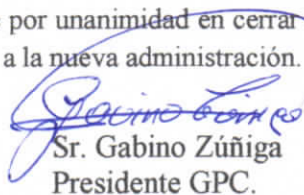 por unanimidad en cerrar
a la nueva administración.
Sr. Gabino Zúñiga
Presidente GPC.